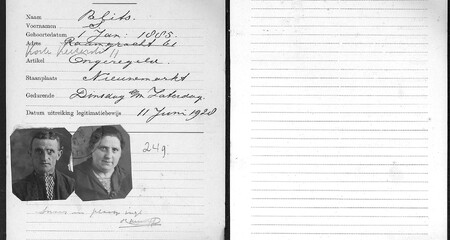 Naam Polits.
Voornamen S.
Geboortedatum 1 Jan: 1885.
Adres Raamgracht 61
Korte 11
Artikel Ongeregeld.
Staanplaats Nieuwmarkt
Gedurende Dinsdag t/m Zaterdag.
Datum uitreiking legitimatiebewijs 11 Juni 1928
249.